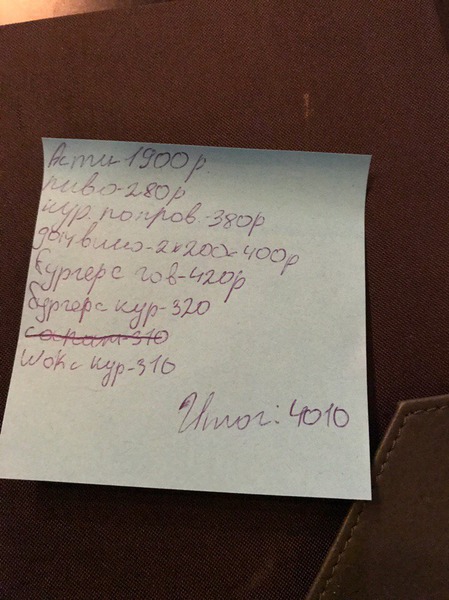 Асти-1900р.
пиво-280р
кур. попров.-380р
2х200=400р
бургер с гов-420р
бургер с кур-320
Wok с кур-310
Итог: 4010